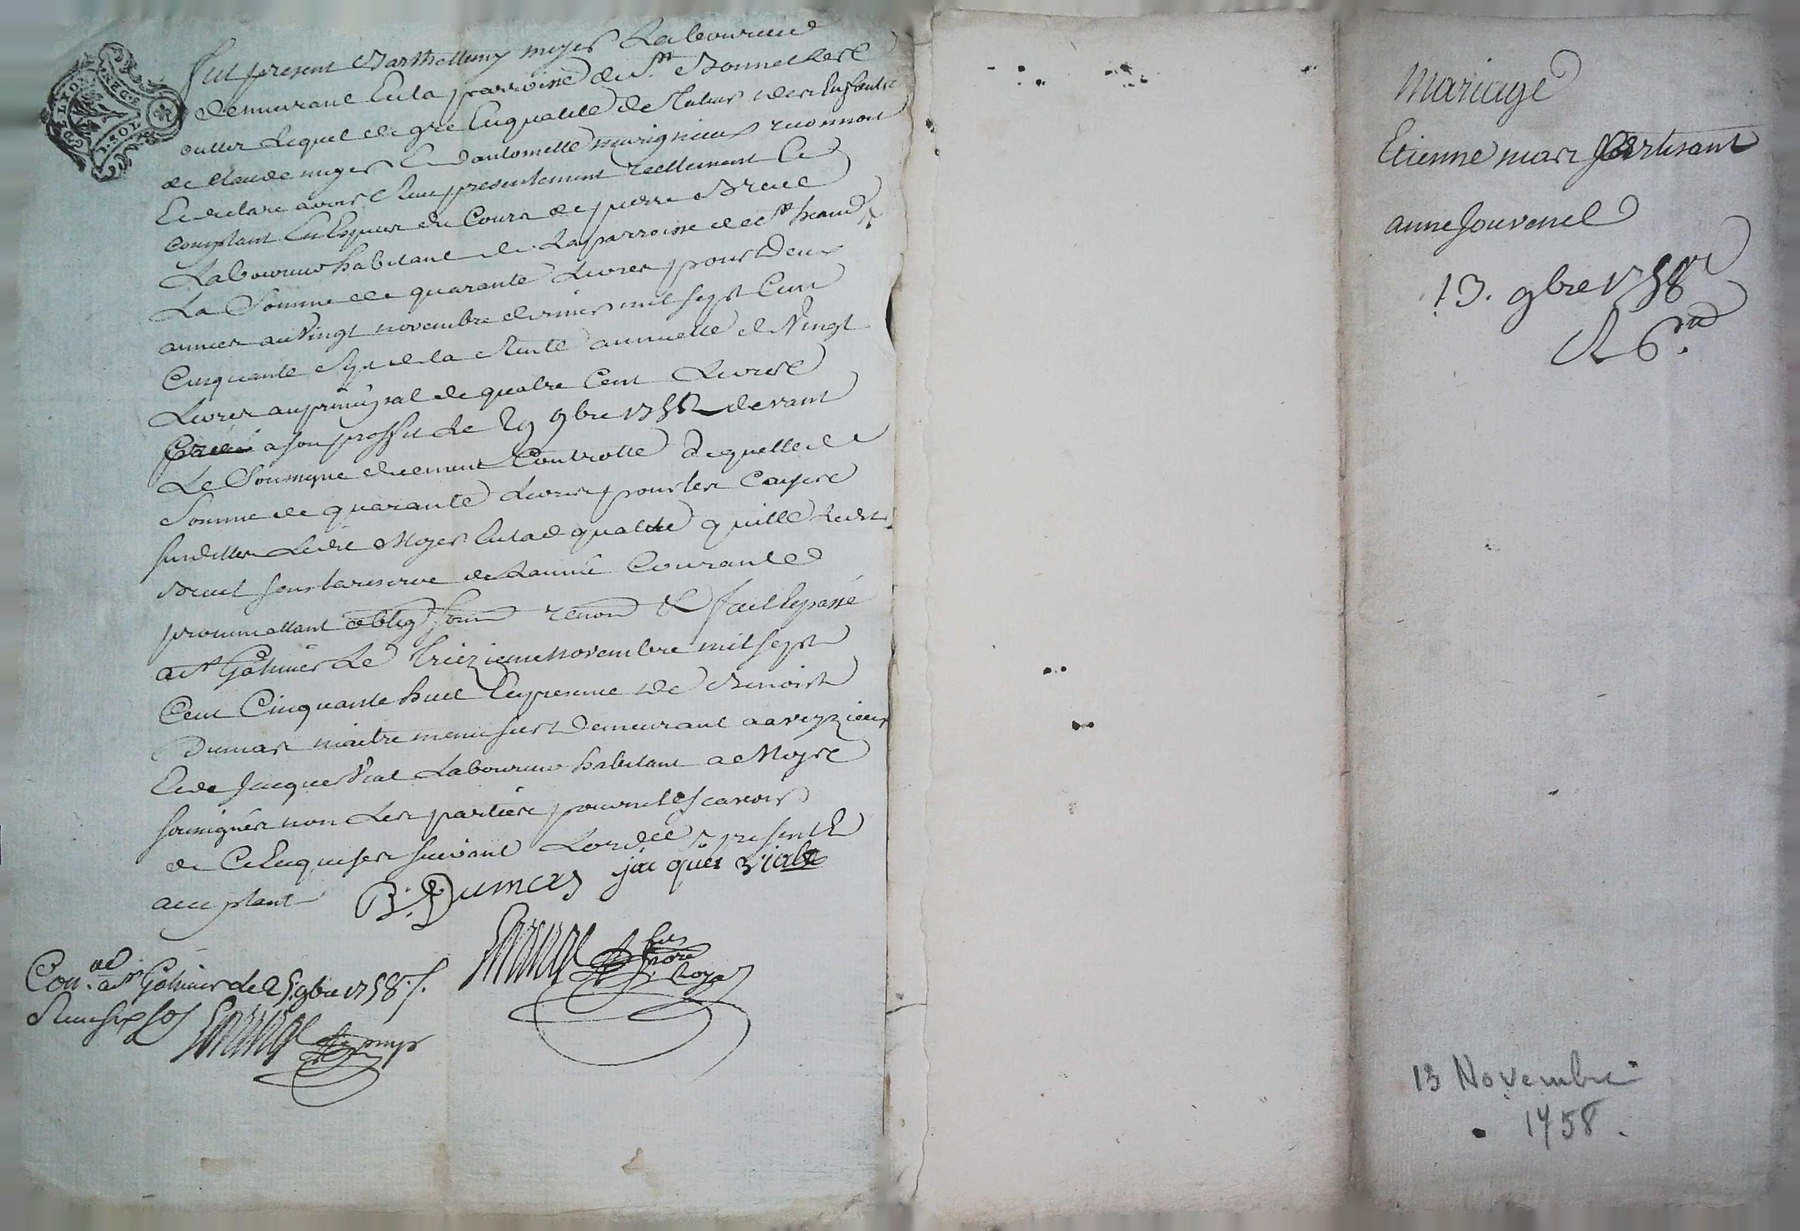 Fut present Barthellemy mejer Laboureur
demeurant En la parroisse de St Bonnet Les
oulles Lequel de gré En qualité de Tuteur des Enfants
de Claude mejer Et d'antoinette reconnoit
Et declare avoir Reçu presentement reellement Et
comptant En Espece du Cours de pierre Bruel
Laboureur habitant de La parroisse de St
La Somme de quarante Livres pour Deux
années au Vingt novembre dernier mil sept Cent
Cinquante Sept de la Rente annuelle de Vingt
Livres au principal de quatre Cent Livres
Créé a son proffit le 29 9bre 1752 devant
Le Sousigné duement Controllé De quelle
Somme de quarante Livres pour les Causes
susdittes Ledit Mejer En lad qualité quitte Ledit
Bruel sous la reserve de L'année Courante
prommettant oblig soum renon & fait Et passé
a St Galmier Le Treizieme novembre mil sept
Cent Cinquante huit En presence de Benoist
Dumas maitre menuisier Demeurant a aveyzieux
Et de Jacque Vial Laboureur habitant a
sousignés non Les parties pour ne le sçavoir
de Ce Enquises suivant L'ordce presente
acceptant B. Dumas jacques vialt
fils nore Royal
Con. a St Galmier le 25 9bre 1758
Reçu six sos
LYON
1. SOL
Mariage
Etienne mari partisant
anne Jouvenel
13. 9bre 1758
R 6.
13 Novembre
1758.